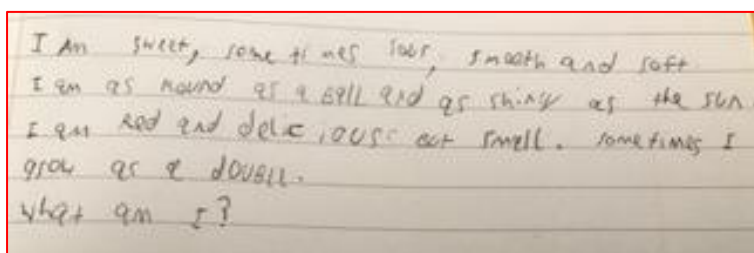 I Am sweet, some times sour, smooth and soft
I am as Round as a Ball and as shiny as the sun
I am Red and deliciouss but small. sometimes I
grow as a doubll.
what am I?